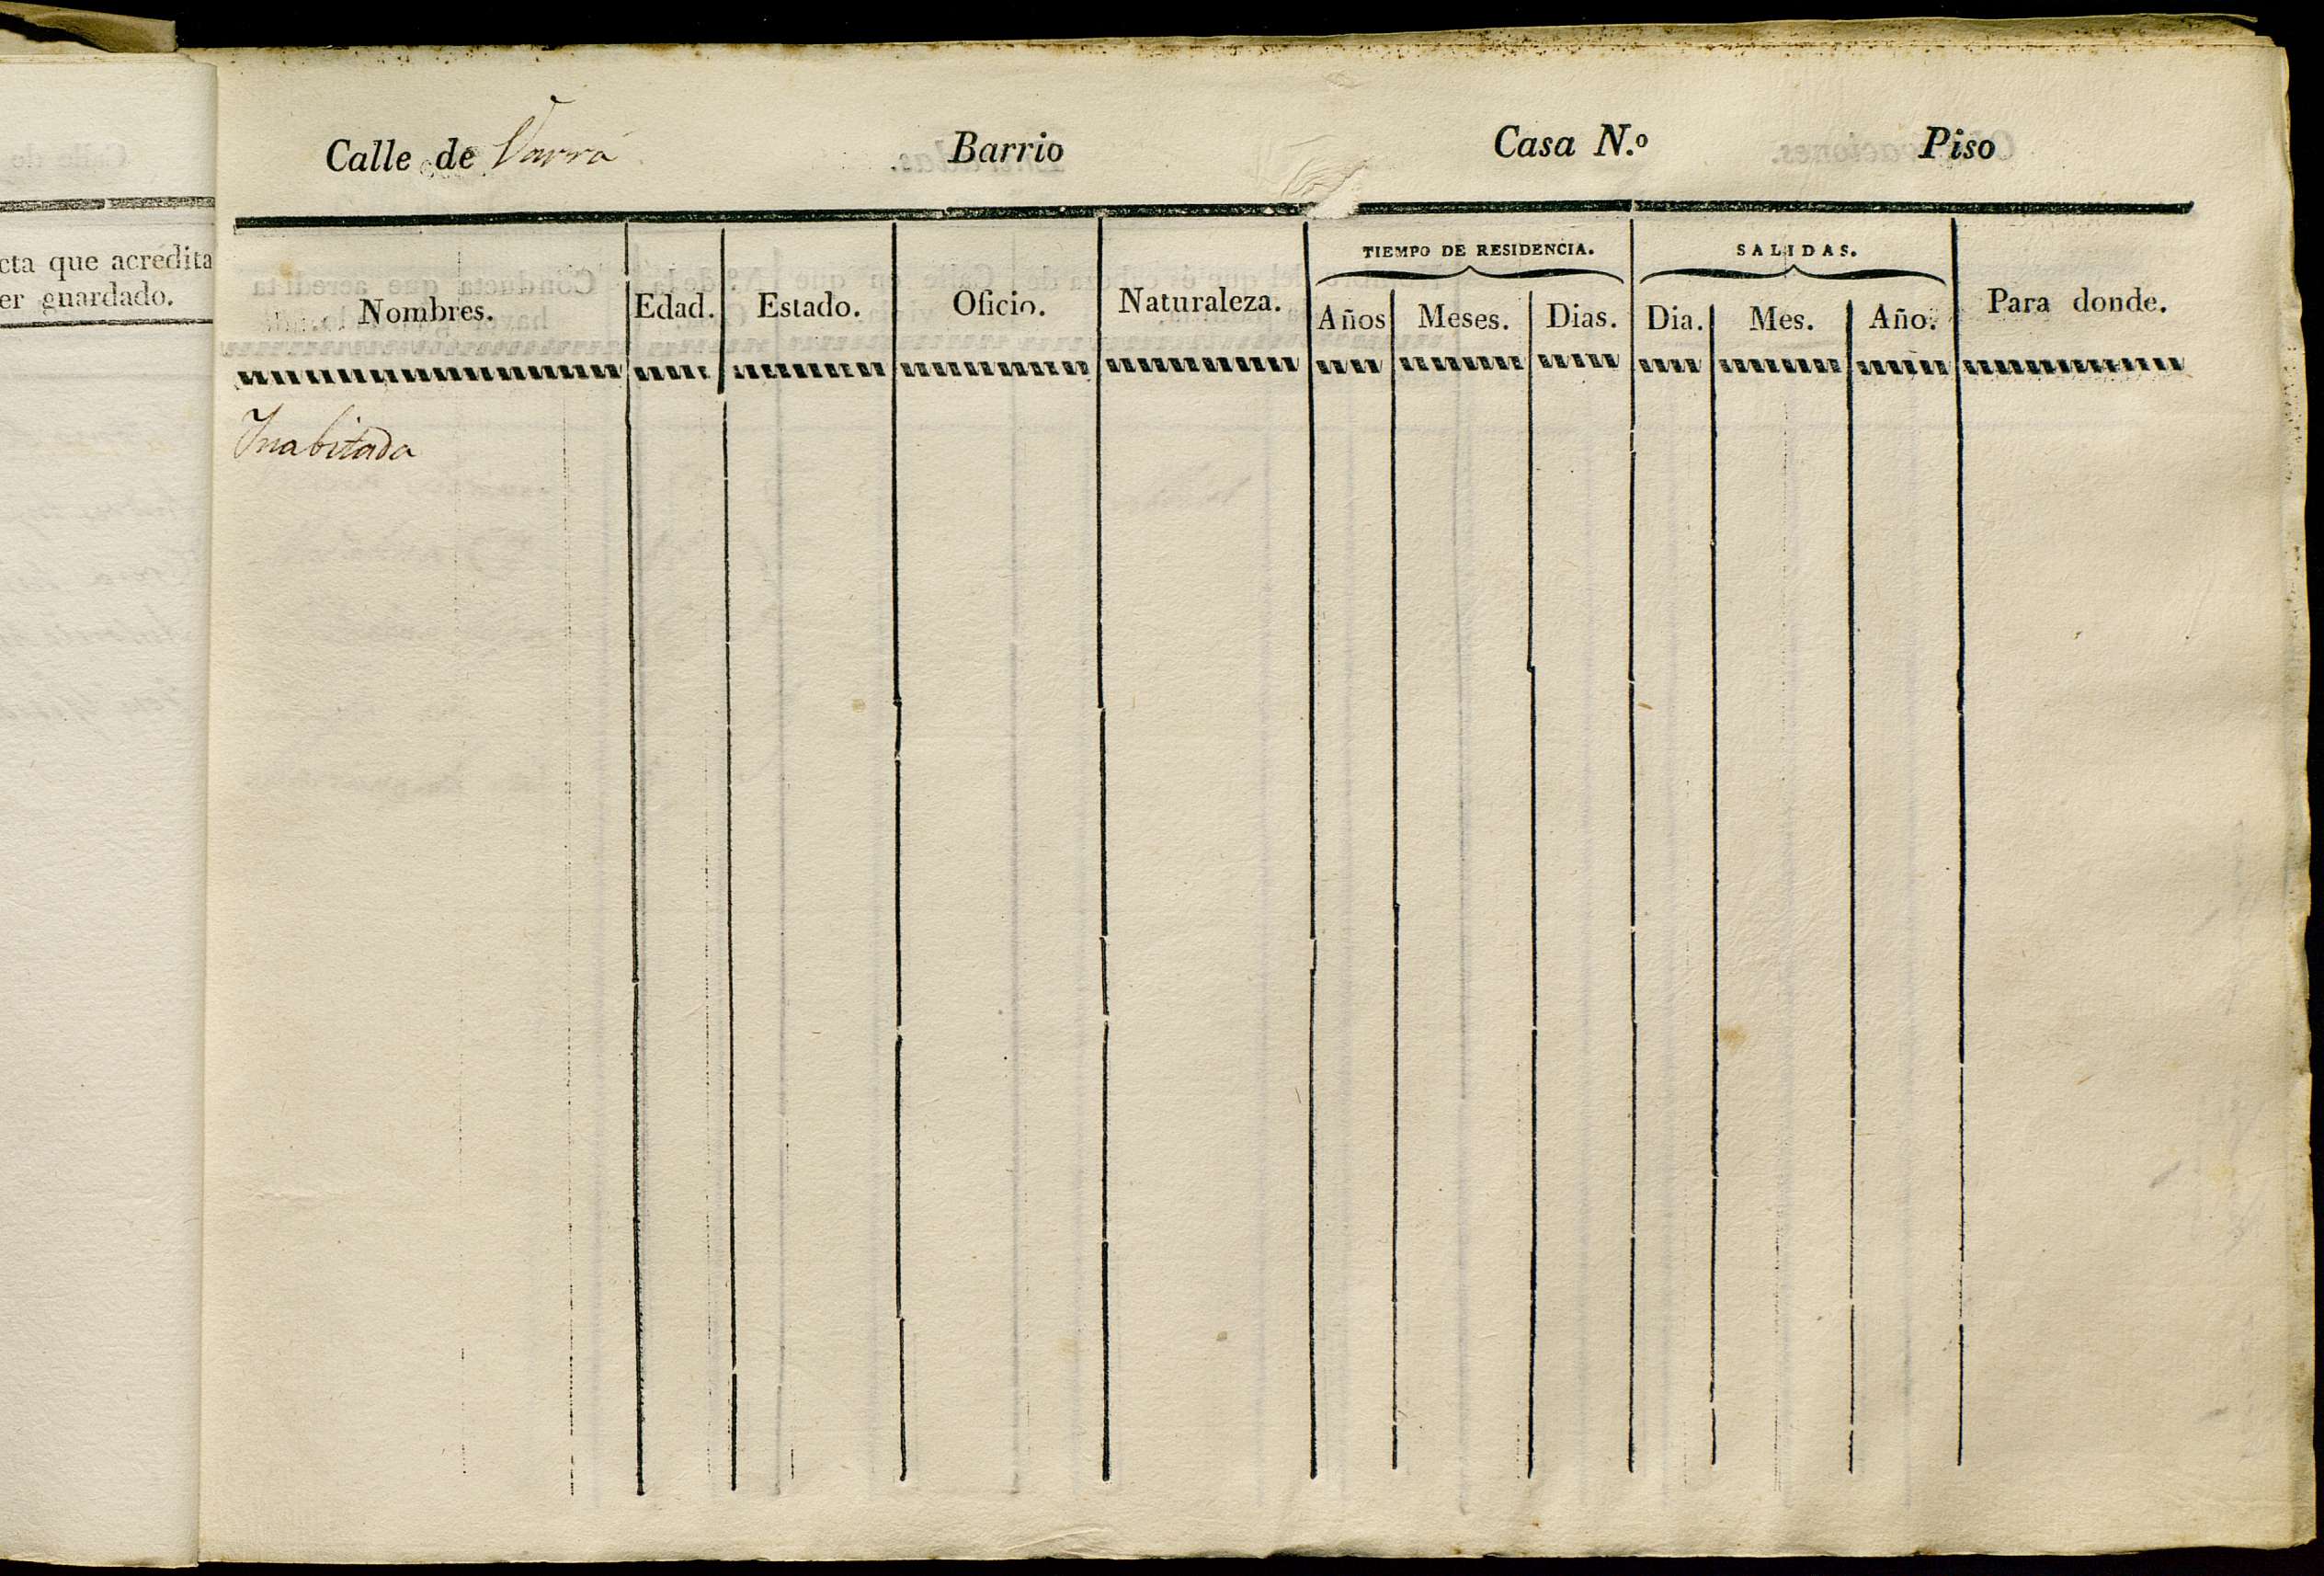 Calle de Varra Barrio Casa N.º Piso
cta que acredita
er guardado.
TIEMPO DE RESIDENCIA. SALIDAS.
Nombres. Edad. Estado. Oficio. Naturaleza. Años Meses. Dias. Dia. Mes. Año. Para donde.
Inabitada